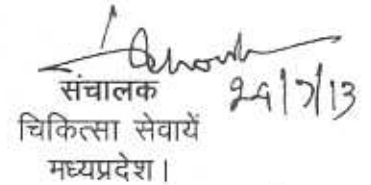 संचालक
29/7/13
चिकित्सा सेवायें
मध्यप्रदेश।